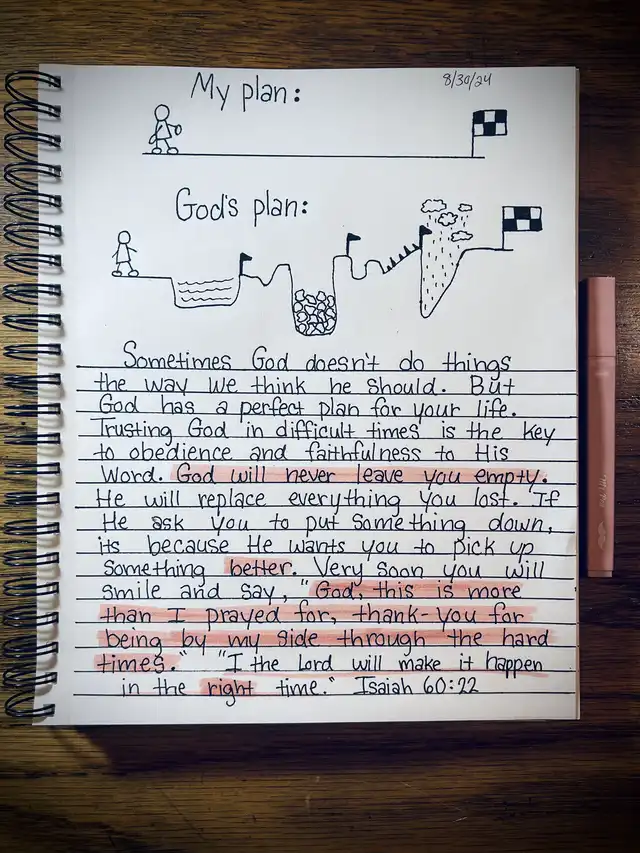 My plan:
8/30/24
God's plan:
Sometimes God doesn't do things
the way we think he should. But
God has a perfect plan for your life.
Trusting God in difficult times is the key
to obedience and faithfulness to His
Word. God will never leave you empty.
He will replace everything you lost. If
He ask you to put something down,
its because He wants you to pick up
something better. Very soon you will
smile and say, "God, this is more
than I prayed for, thank-you for
being by my side through the hard
times." "I the Lord will make it happen
in the right time." Isaiah 60:22